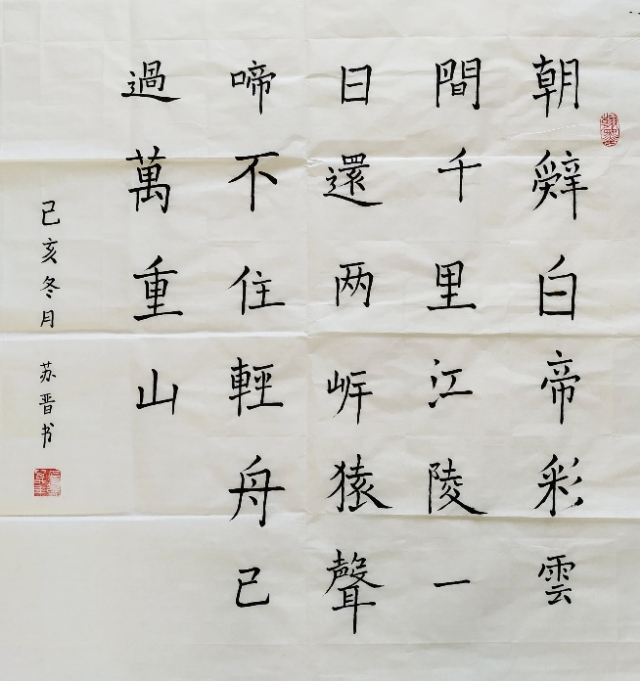 朝辭白帝彩雲
間千里江陵一
日還两岍猿聲
啼不住輕舟已
過萬重山
己亥冬月 苏晋书